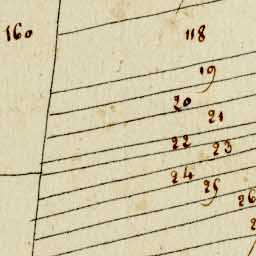 160
118
19
20
21
22
23
24
25
26